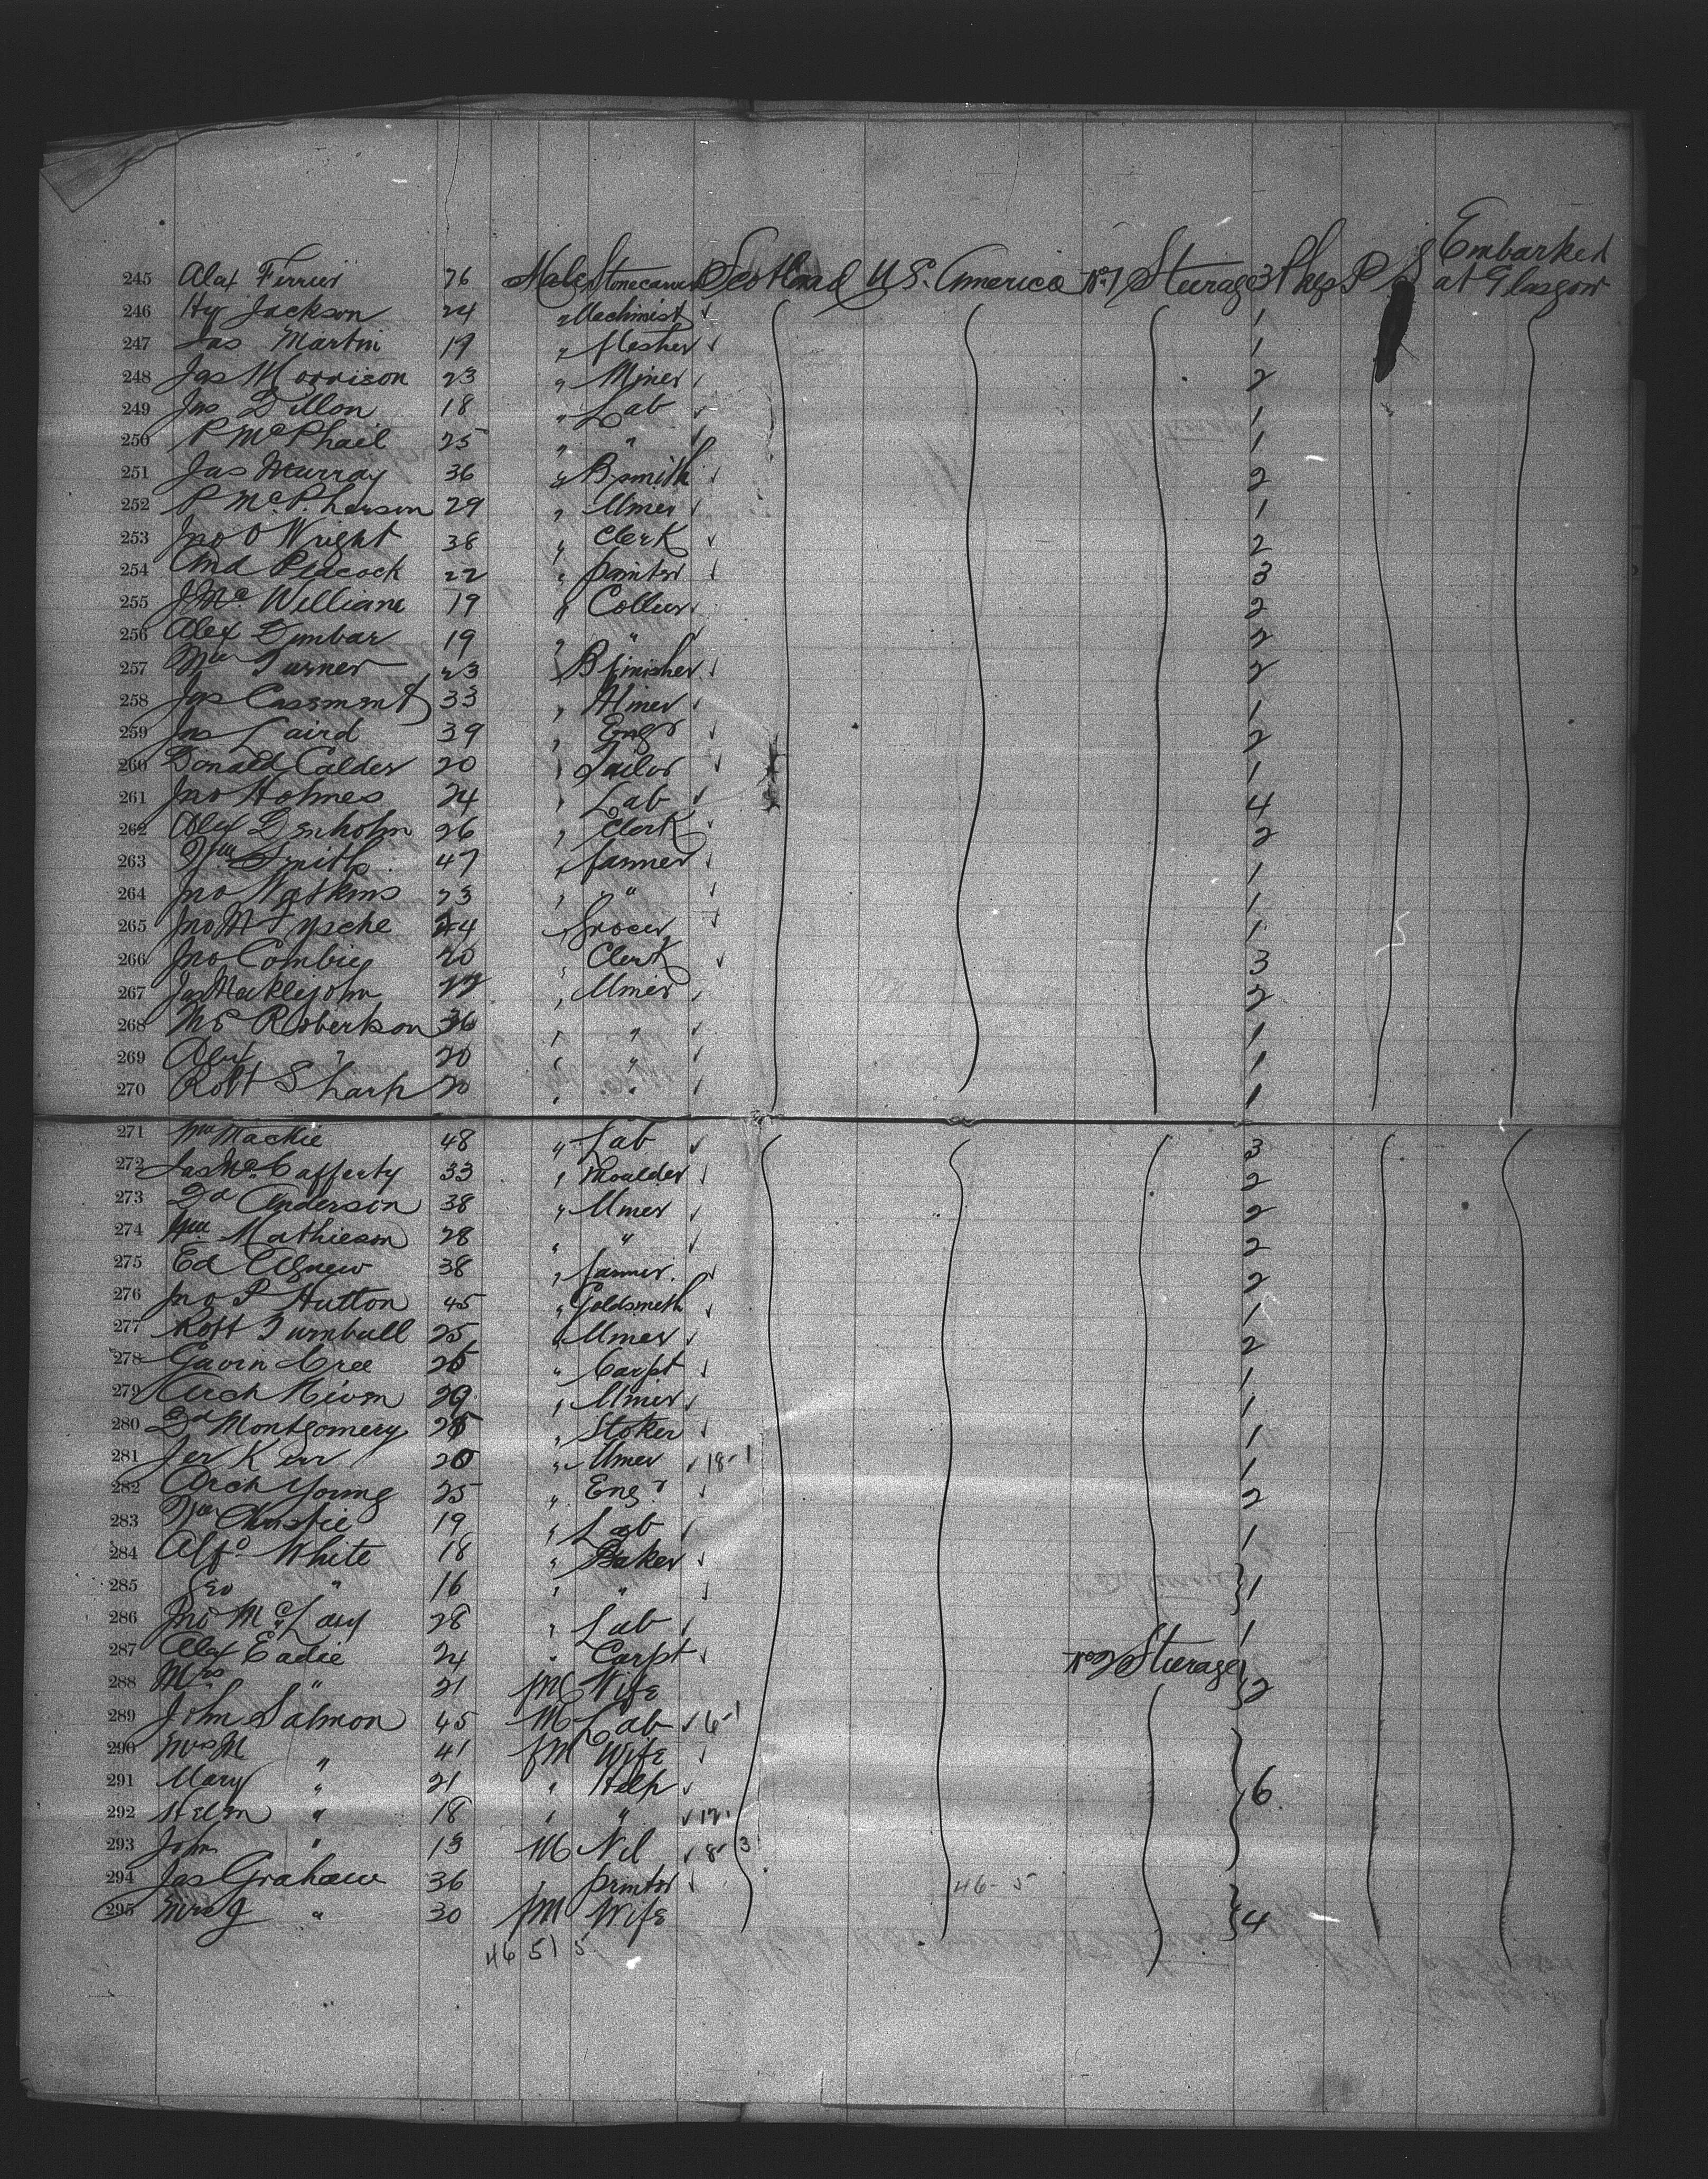 Embarked
245 Alex Ferrier 26 Male Stonecarver Scotland U.S. America No 1 Steerage 3 Pkgs P S at Glasgow
246 Hy Jackson 24 " Mechinist ✓ 1
247 Jas Martin 19 " flesher ✓ 1
248 Jas Morrison 23 " Miner ✓ 2
249 Jno Dillon 18 " Lab ✓ 1
250 P McPhail 25 " " ✓ 1
251 Jas Murray 36 " Bsmith ✓ 2
252 P McPherson 29 " Miner ✓ 1
253 Jno O Wright 38 " Clerk ✓ 2
254 And Peacock 22 " painter ✓ 3
255 J Mc William 19 " Collier ✓ 2
256 Alex Dunbar 19 " " ✓ 2
257 Wm Turner 23 " B finisher ✓ 2
258 Jas Casement 33 " Miner ✓ 1
259 Jno Laird 39 " Engr ✓ 2
260 Donald Calder 20 " Tailor ✓ 1
261 Jno Holmes 24 " Lab ✓ 4
262 Alex Denholm 26 " Clerk ✓ 2
263 Wm Smith 47 " farmer ✓ 1
264 Jno Watkins 23 " " ✓ 1
265 Jno M 44 " Grocer ✓ 1
266 Jno Combie 20 " Clerk ✓ 3
267 Jas Meiklejohn " Miner ✓ 2
268 Robertson 36 " " ✓ 1
269 Alex " 20 " " ✓ 1
270 Robt Sharp 20 " " ✓ 1
271 Wm Mackie 48 " Lab ✓ 3
272 Jas McCafferty 33 " Moulder ✓ 2
273 Dd Anderson 38 " Miner ✓ 2
274 Wm Mathieson 28 " " ✓ 2
275 Ed Agnew 38 " farmer ✓ 2
276 Jno P Hutton 45 " Goldsmith ✓ 1
277 Robt Turnbull 25 " Miner ✓ 2
278 Gavin Cree 25 " Carpt ✓ 1
279 Arch Niven 29 " Miner ✓ 1
280 Dd Montgomery 25 " Stoker ✓ 1
281 Jer Kerr 20 " Miner ✓ 18-1 1
282 Arch Young 25 " Engr ✓ 2
283 Wm Christie 19 " Lab ✓ 1
284 Alfd White 18 " Baker ✓
285 Geo " 16 " " ✓ 1
286 Jno McLay 28 " Lab ✓ 1
287 Alex Eadie 24 " Carpt ✓ No 2 Steerage
288 Mrs " 21 fM Wife 2
289 John Salmon 45 M Lab ✓ 6-1
290 Mrs M " 41 fM Wife ✓
291 Mary " 21 " Help ✓ 6
292 Helen " 18 " " ✓ 12
293 John " 13 M Nil ✓ 8 3
294 Jas Graham 36 printer ✓ 46-5
295 Mrs J " 30 fM Wife 4
46 51 5